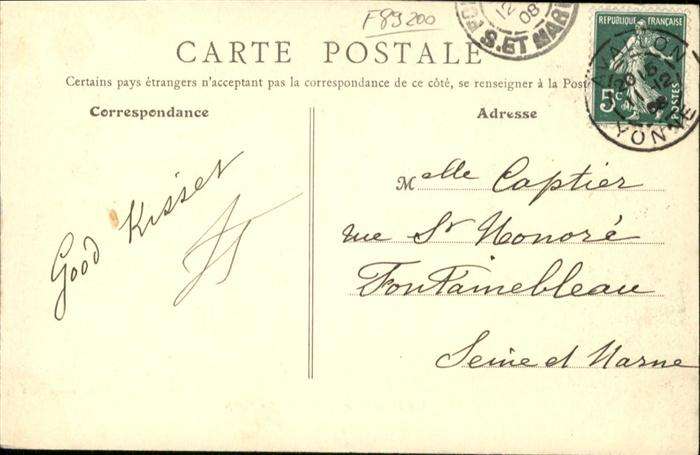 F89200
S. ET MAR
08
REPUBLIQUE FRANÇAISE
5c
POSTES
AVALLON
YONNE
CARTE POSTALE
Certains pays étrangers n'acceptant pas la correspondance de ce côté, se renseigner à la Post
Correspondance
Adresse
Good Kisses
Melle Captier
rue St Honoré
Fontainebleau
Seine et Marne